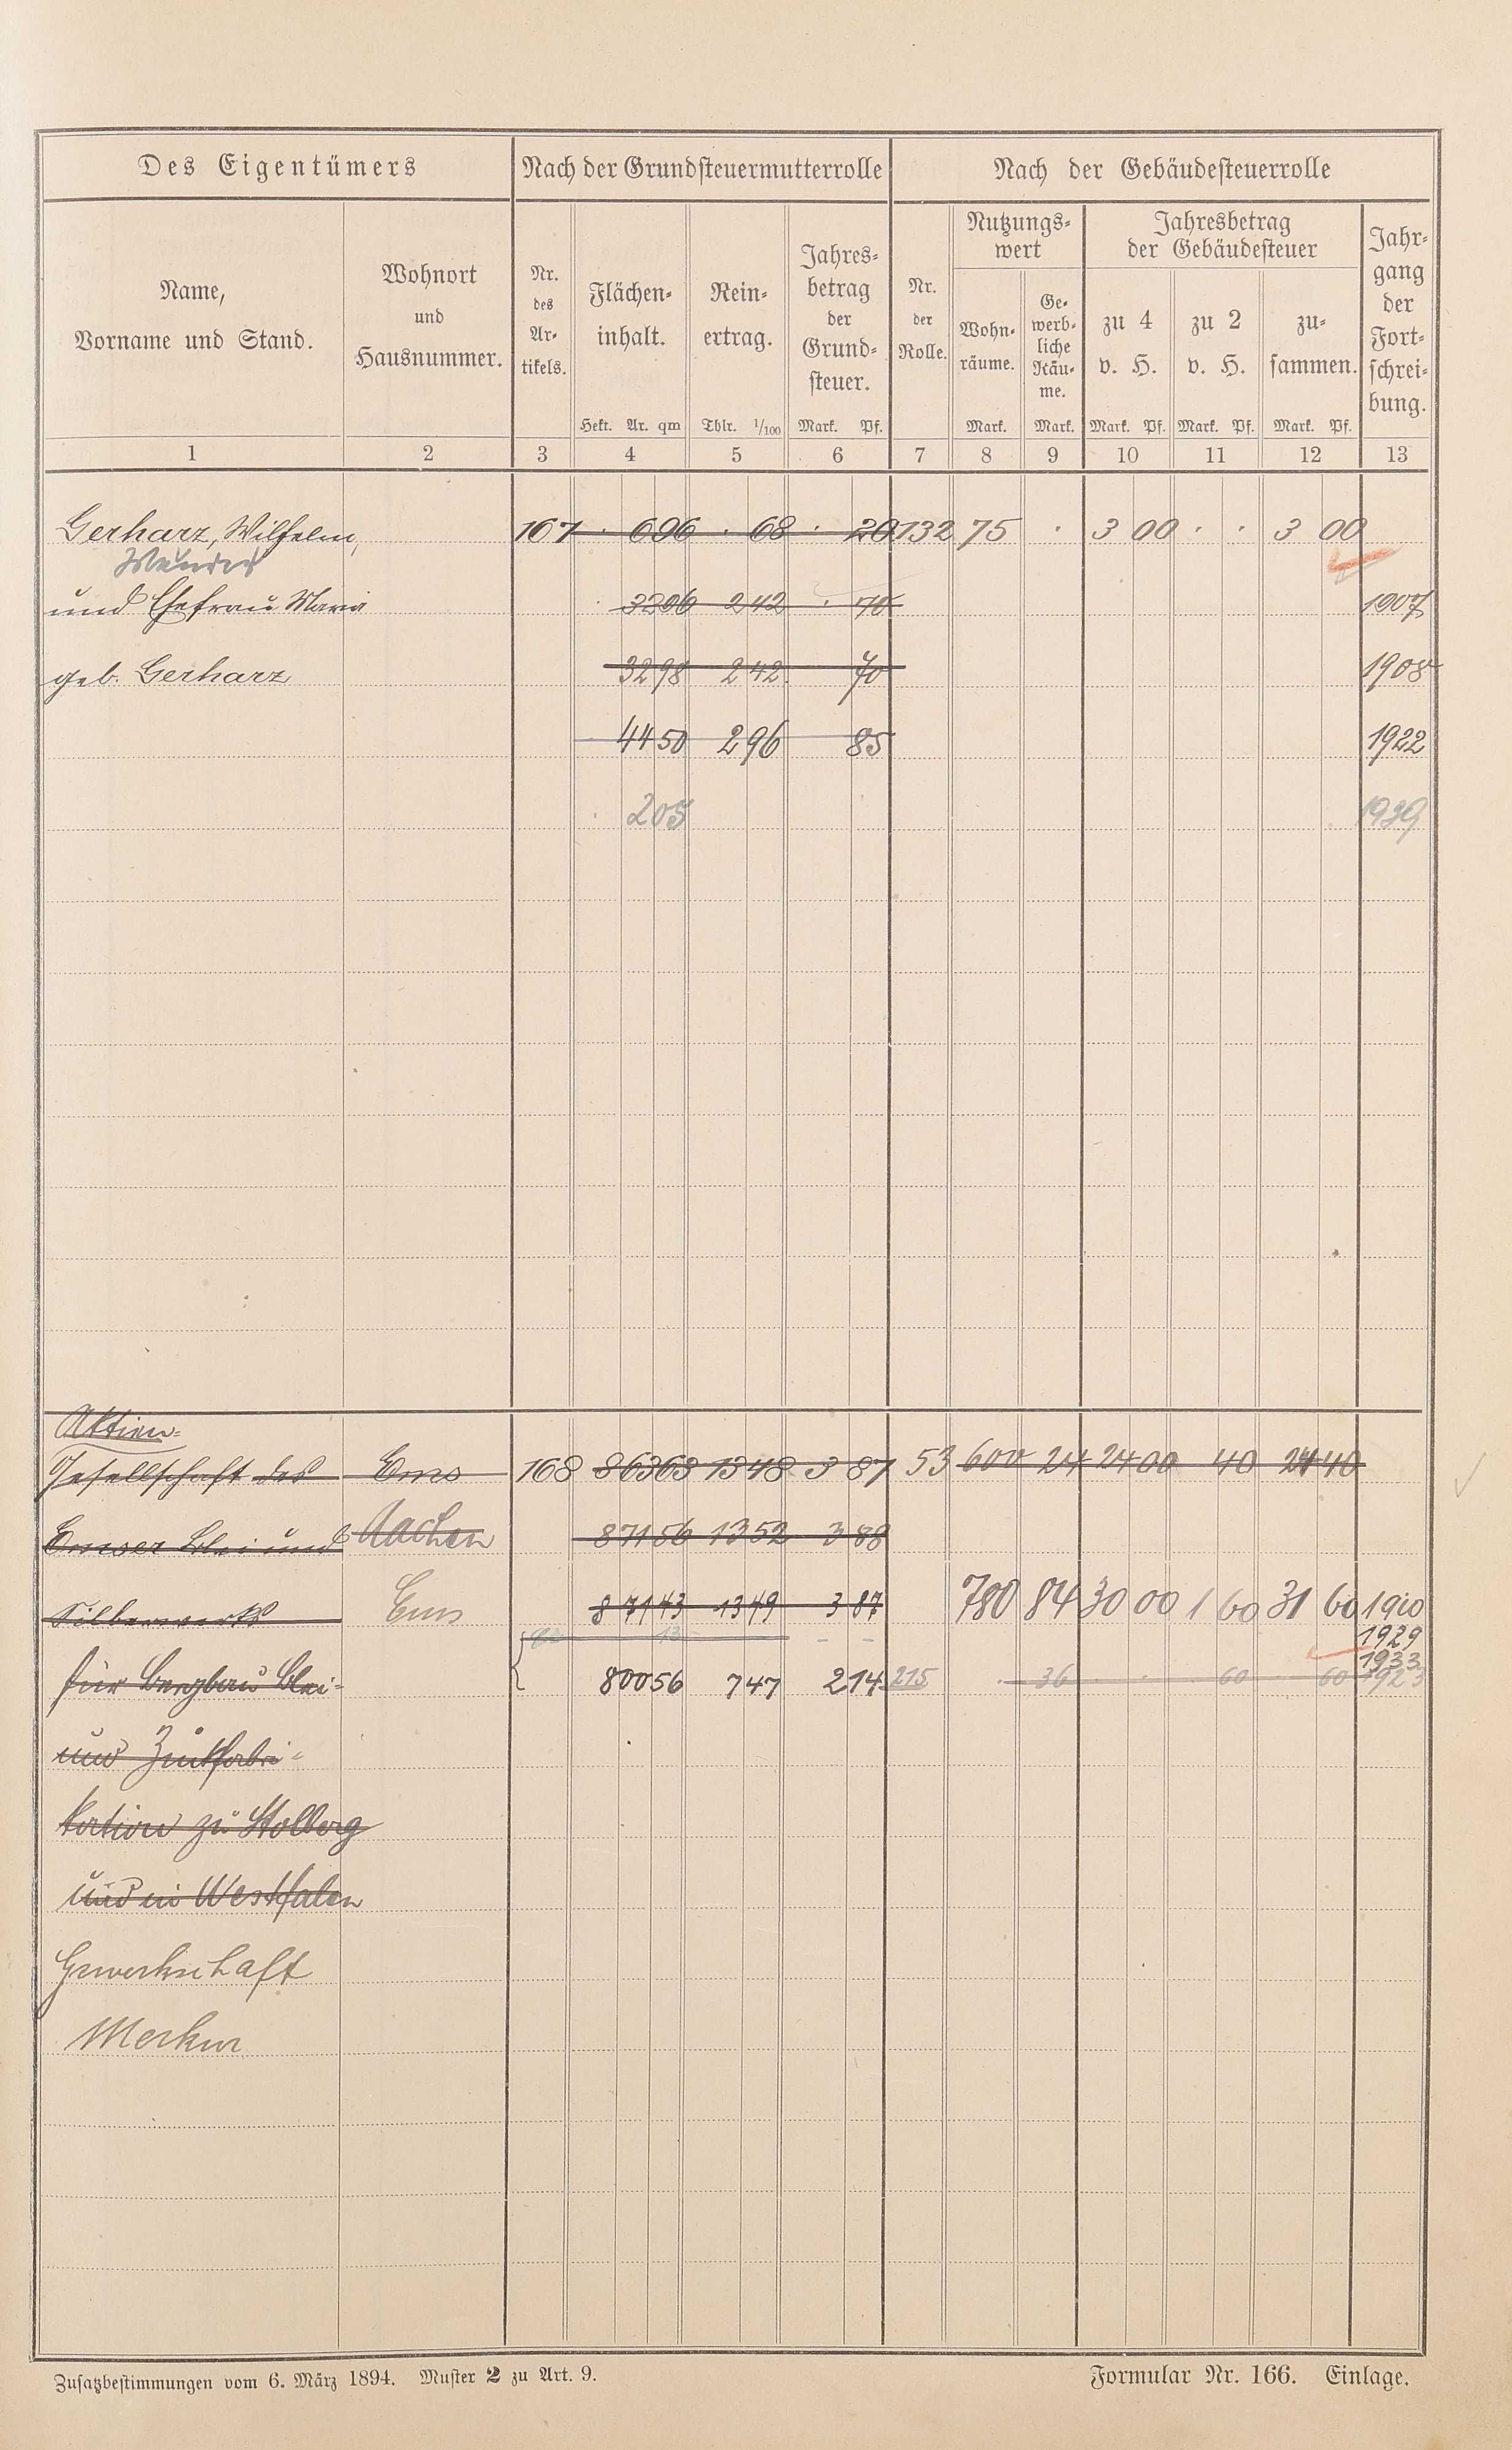 Des Eigentümers
Nach der Grundsteuermutterrolle
Nach der Gebäudesteuerrolle
Name,
Vorname und Stand.
Wohnort
und
Hausnummer.
Nr.
des
Ar-
tikels.
Flächen-
inhalt.
Hekt. Ar. qm
Rein-
ertrag.
Thlr. 1/100
Jahres-
betrag
der
Grund-
steuer.
Mark. Pf.
Nr.
der
Rolle.
Nutzungs-
wert
Wohn-
räume.
Mark.
Ge-
werb-
liche
Räu-
me.
Mark.
Jahresbetrag
der Gebäudesteuer
zu 4
v. H.
Mark. Pf.
zu 2
v. H.
Mark. Pf.
zu-
sammen.
Mark. Pf.
Jahr-
gang
der
Fort-
schrei-
bung.
1 2 3 4 5 6 7 8 9 10 11 12 13
Gerharz, Wilhelm, 167 · 696 · 68 · 20 132 75 · 3 00 · · 3 00
und Ehefrau Maria 3296 242 · 70 1907
geb. Gerharz 3298 242 70 1908
4450 296 85 1922
205 1939
Aktien-
Gesellschaft des Ems 168 86363 1348 3 87 53 600 24 24 00 40 24 40
Emser Blei und Aachen 87156 1352 3 88
Silberwerks Ems 87143 1349 3 87 780 84 30 00 1 60 31 60 1910
13 - - 1929
1933
für Bergbau Blei- 80056 747 214 215 · 36 · · 60 60 1923
und Zinkfabri-
kation zu Stolberg
und in Westfalen
Gewerkschaft
Merkur
Zusatzbestimmungen vom 6. März 1894. Muster 2 zu Art. 9.
Formular Nr. 166. Einlage.